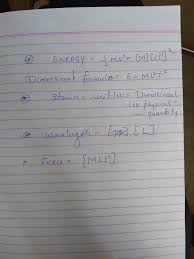 ENERGY = 1/2 mv² = [M][LT⁻¹]²
Dimensional formula = E = ML²T⁻²
Strain = unitless = Dimensional
physical
quantity
Wavelength = [L]
Force = [MLT⁻²]